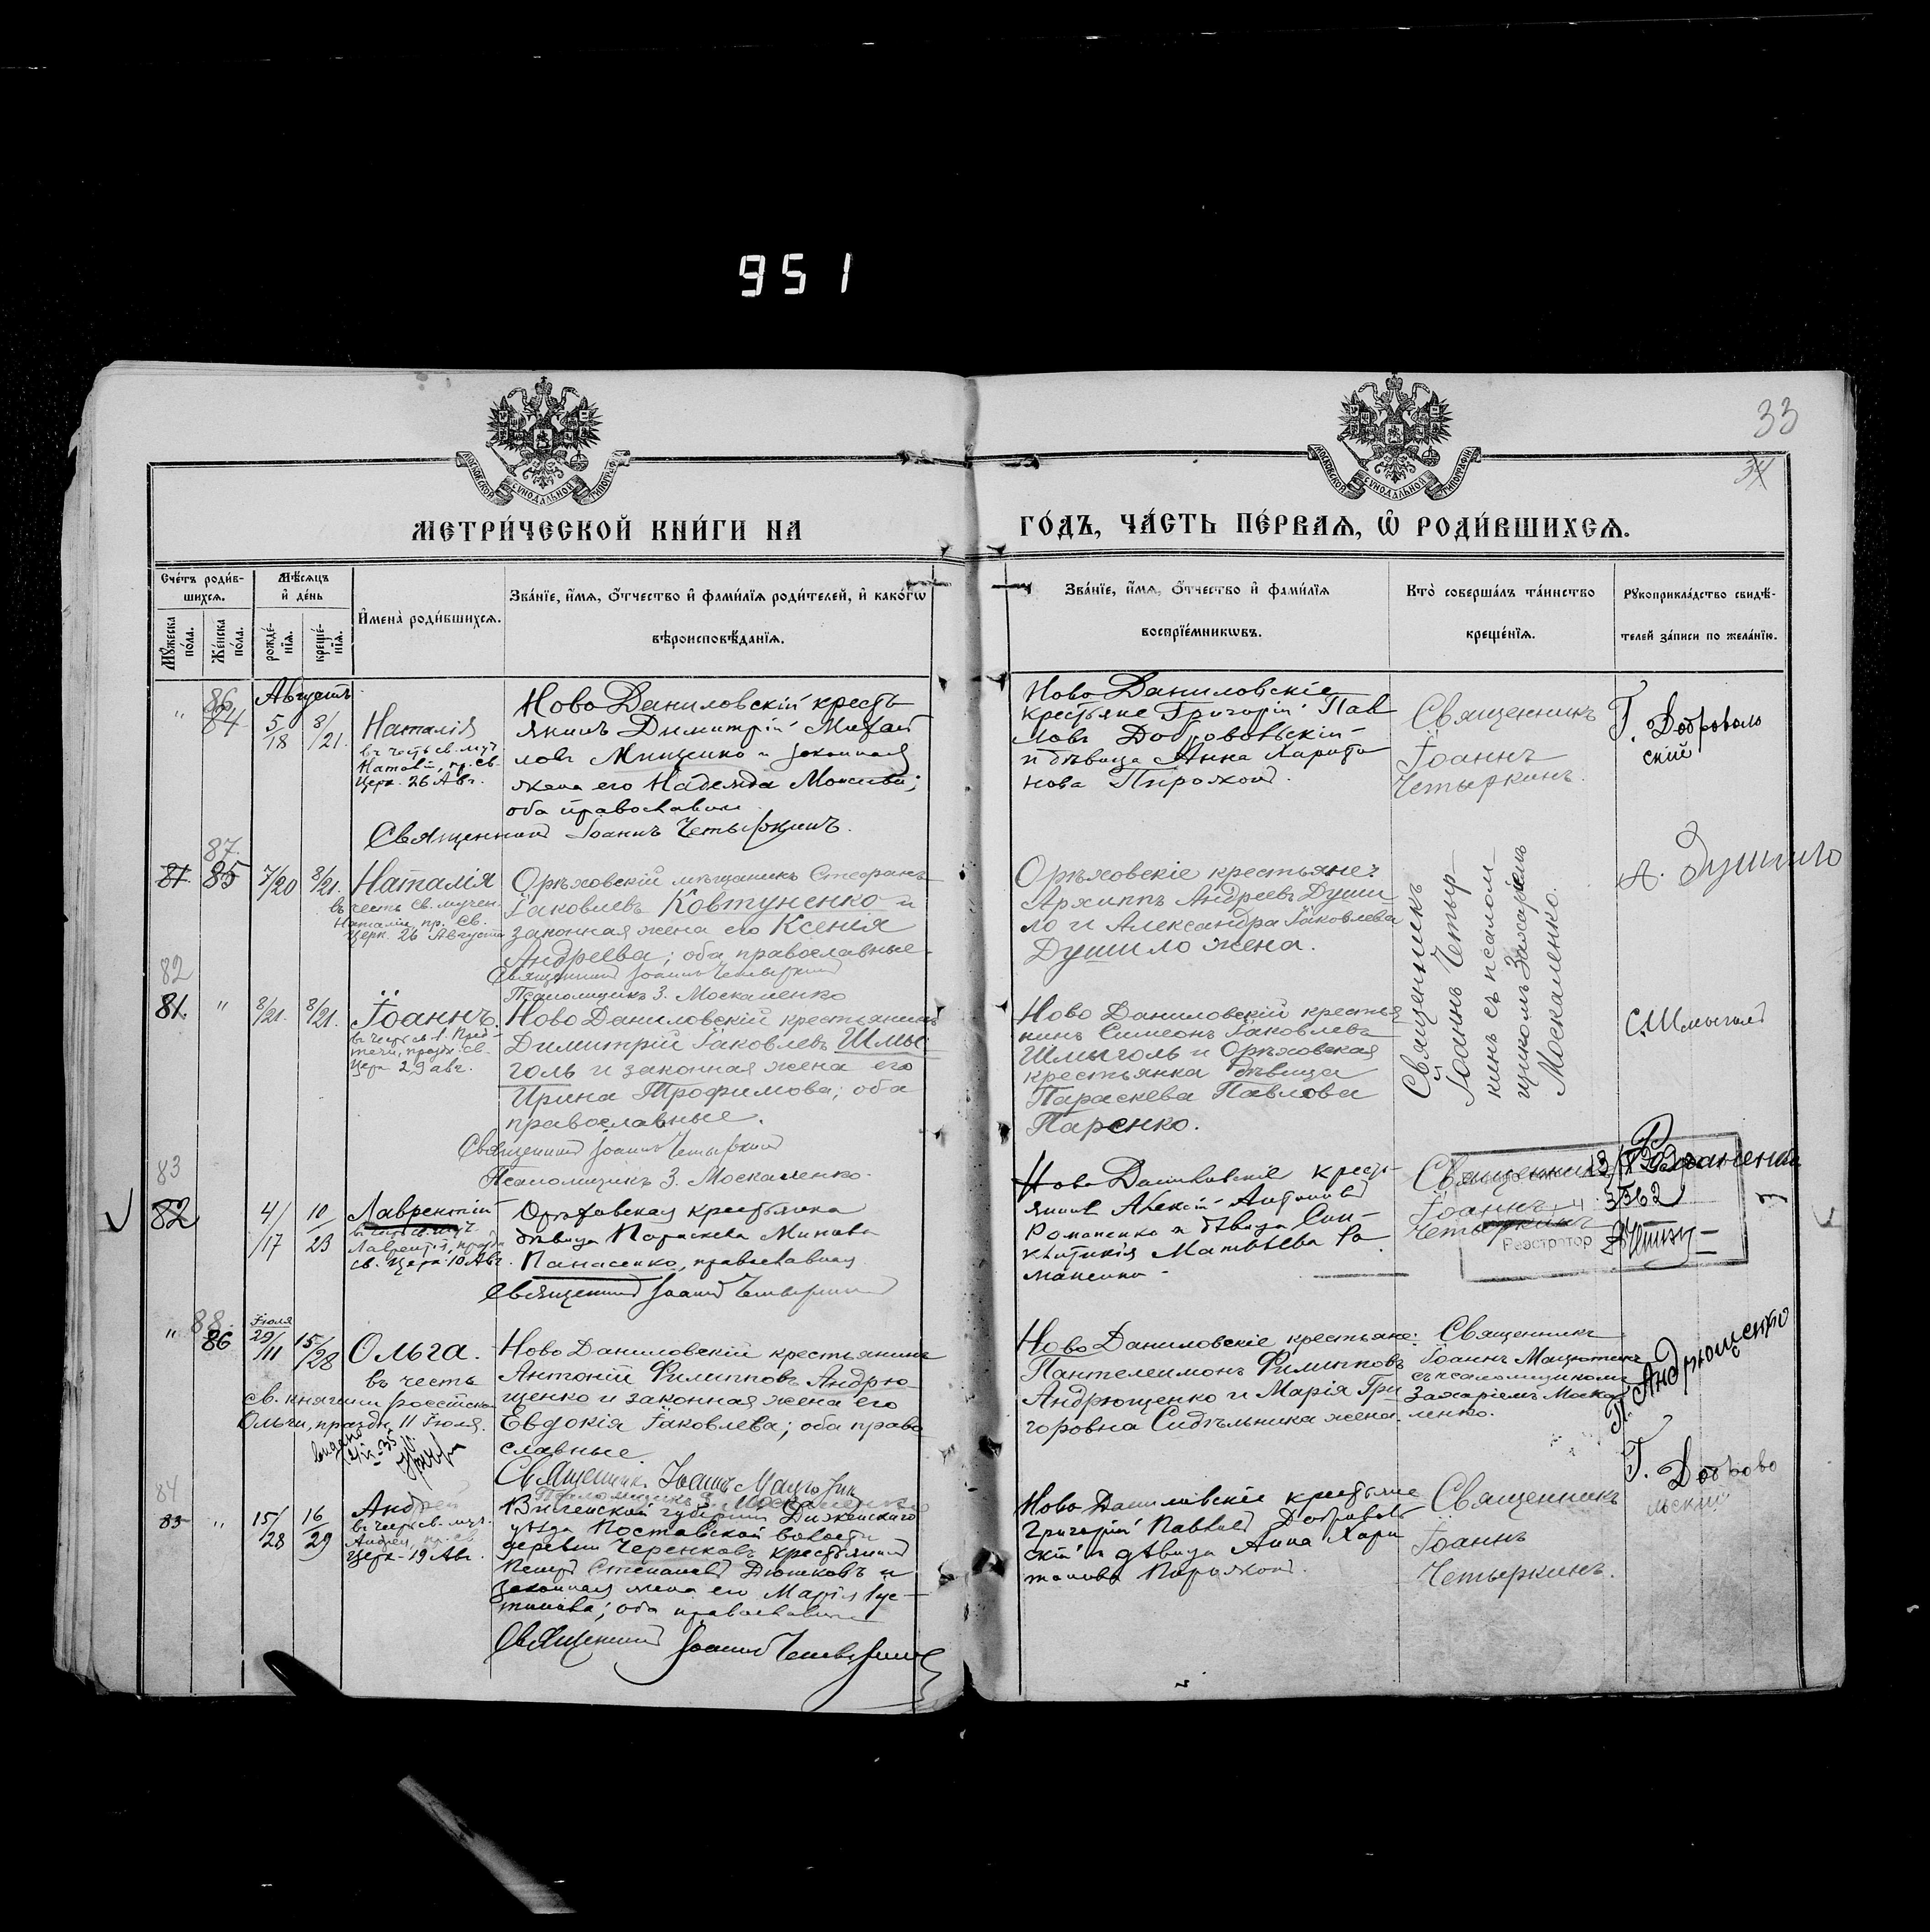 951
33
34
МОСКОВСКОЙ СУНОДАЛЬНОЙ ТИПОГРАФІИ
МОСКОВСКОЙ СУНОДАЛЬНОЙ ТИПОГРАФІИ
МЕТРИ́ЧЕСКОЙ КНИ́ГИ НА
ГО́ДЪ, ЧА́СТЬ ПЕ́РВАѦ, Ѡ҆ РОДИ́ВШИХСѦ.
Сче́тъ роди́в-
шихсѧ.
Мꙋ́жеска по́ла.
Же́нска по́ла.
Мѣ́сѧцъ и҆ де́нь
рожде́-нїѧ.
креще́-нїѧ.
И҆мена̀ роди́вшихсѧ.
Зва́нїе, и҆́мѧ, ѻ҆́тчество и҆ фами́лїѧ роди́телей, и҆ како́гѡ
вѣроисповѣ́данїѧ.
Зва́нїе, и҆́мѧ, ѻ҆́тчество и҆ фами́лїѧ
воспрїе́мникѡвъ.
Кто̀ соверша́лъ та́инство
креще́нїѧ.
Рꙋкоприкла́дство свидѣ́-
телей за́писи по жела́нїю.
Августъ
86
" 84 5/18 8/21. Наталія
въ честь св. муч.
Наталіи, пр. св.
Церк. 26 Авг.
Ново Даниловскій кресть
янинъ Димитрій Михай
ловъ Мищенко и законная
жена его Надежда Моисеева;
оба православные
Священникъ Іоаннъ Четыркинъ.
Ново Даниловскіе
крестьяне Григорій Пав
ловъ Добровольскій
и дѣвица Анна Харито
нова Пирожокъ.
Священникъ
Іоаннъ
Четыркинъ.
Г. Доброволь
скій
87.
81. 85 7/20 8/21. Наталія
въ честь св. мучен.
Наталіи, пр. св.
Церк. 26 Августа
Орѣховскій мѣщанинъ Стефанъ
Іаковлевъ Ковтуненко и
законная жена его Ксенія
Андреева; оба православные.
Священникъ Іоаннъ Четыркинъ
Псаломщикъ З. Москаленко
Орѣховскіе крестьяне:
Архиппъ Андреевъ Души
ло и Александра Іаковлева
Душило жена.
Священникъ
Іоаннъ Четыр
кинъ съ псалом
щикомъ Захаріемъ
Москаленко.
А. Душило
82
81. " 8/21. 8/21. Іоаннъ.
въ честь св. І. Пред-
течи, празд. св.
Церк 29 авг.
Ново Даниловскій крестьянинъ
Димитрій Іаковлевъ Шмы
голь и законная жена его
Ирина Трофимова; оба
православные.
Священникъ Іоаннъ Четыркинъ
Псаломщикъ З. Москаленко.
Ново Даниловскій крестья
нинъ Симеонъ Іаковлевъ
Шмыголь и Орѣховская
крестьянка дѣвица
Параскева Павлова
Паренко.
С. Шмыголь
83
82 4/17 10/23 Лаврентій
въ честь св. муч.
Лаврентія, праздн.
св. Церк. 10 Авг.
Орѣховская крестьянка
дѣвица Параскева Минова
Панасенко, православная
Священникъ Іоаннъ Четыркинъ
Ново Даниловскіе кресть
янинъ Алексій Антоновъ
Романенко и дѣвица Син-
клитикія Матвѣева Ро
маненко
Священникъ
Іоаннъ
Четыркинъ
Реэстротор
88.
" 86 Іюля 29/11 15/28 Ольга.
въ честь
св. княгини россійской
Ольги, праздн. 11 Іюля.
Ново Даниловскій крестьянинъ
Антоній Филипповъ Андрю-
щенко и законная жена его
Евдокія Іаковлева; оба право
славные.
Ново Даниловскіе крестьяне:
Пантелеимонъ Филипповъ
Андрющенко и Марія Гри
горовна Сидѣльника жена.
Священникъ
съ псаломщикомъ
Захаріемъ Моска
ленко.
П. Андрющенко
84
83 " 15/28 16/29 Андрей
въ честь св. муч.
Андрея, пр. св.
Церк. 19 Авг.
Виленской губерніи Дисненскаго
уѣзда Поставской волости
деревни Черенковъ крестьянинъ
Петръ Степановъ Дюжковъ и
законная жена его Марія Іус-
тинова; оба православные
Священникъ Іоаннъ Четыркинъ
Ново Даниловскіе крестьяне
Григорій Павловъ Доброволь
скій и дѣвица Анна Хари
тонова Пирожокъ.
Священникъ
Іоаннъ
Четыркинъ.
Г. Доброво
льскій